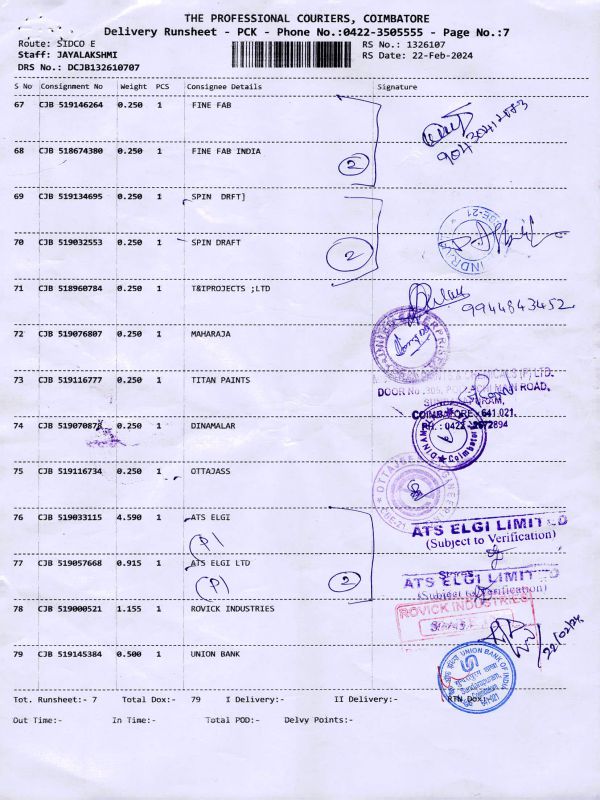 THE PROFESSIONAL COURIERS, COIMBATORE
Delivery Runsheet - PCK - Phone No.:0422-3505555 - Page No.:7
Route: SIDCO E
RS No.: 1326107
Staff: JAYALAKSHMI
RS Date: 22-Feb-2024
DRS No.: DCJB132610707
S No Consignment No Weight PCS Consignee Details Signature
67 CJB 519146264 0.250 1 FINE FAB
68 CJB 518674380 0.250 1 FINE FAB INDIA
2
69 CJB 519134695 0.250 1 SPIN DRFT]
70 CJB 519032553 0.250 1 SPIN DRAFT
2
71 CJB 518960784 0.250 1 T&IPROJECTS ;LTD
9944843452
72 CJB 519076807 0.250 1 MAHARAJA
73 CJB 519116777 0.250 1 TITAN PAINTS
DOOR No :305, POLLACHI MAIN ROAD,
COIMBATORE - 641 021.
74 CJB 51907087 0.250 1 DINAMALAR
Coimbatore
75 CJB 519116734 0.250 1 OTTAJASS
76 CJB 519033115 4.590 1 ATS ELGI
(P)
ATS ELGI LIMITED
(Subject to Verification)
77 CJB 519057668 0.915 1 ATS ELGI LTD
(P)
2
ATS ELGI LIMITED
(Subject to Verification)
78 CJB 519000521 1.155 1 ROVICK INDUSTRIES
ROVICK INDUSTRIES
22/02/24
79 CJB 519145384 0.500 1 UNION BANK
UNION BANK OF INDIA
Tot. Runsheet:- 7 Total Dox:- 79 I Delivery:- II Delivery:- RTN Dox:-
Out Time:- In Time:- Total POD:- Delvy Points:-